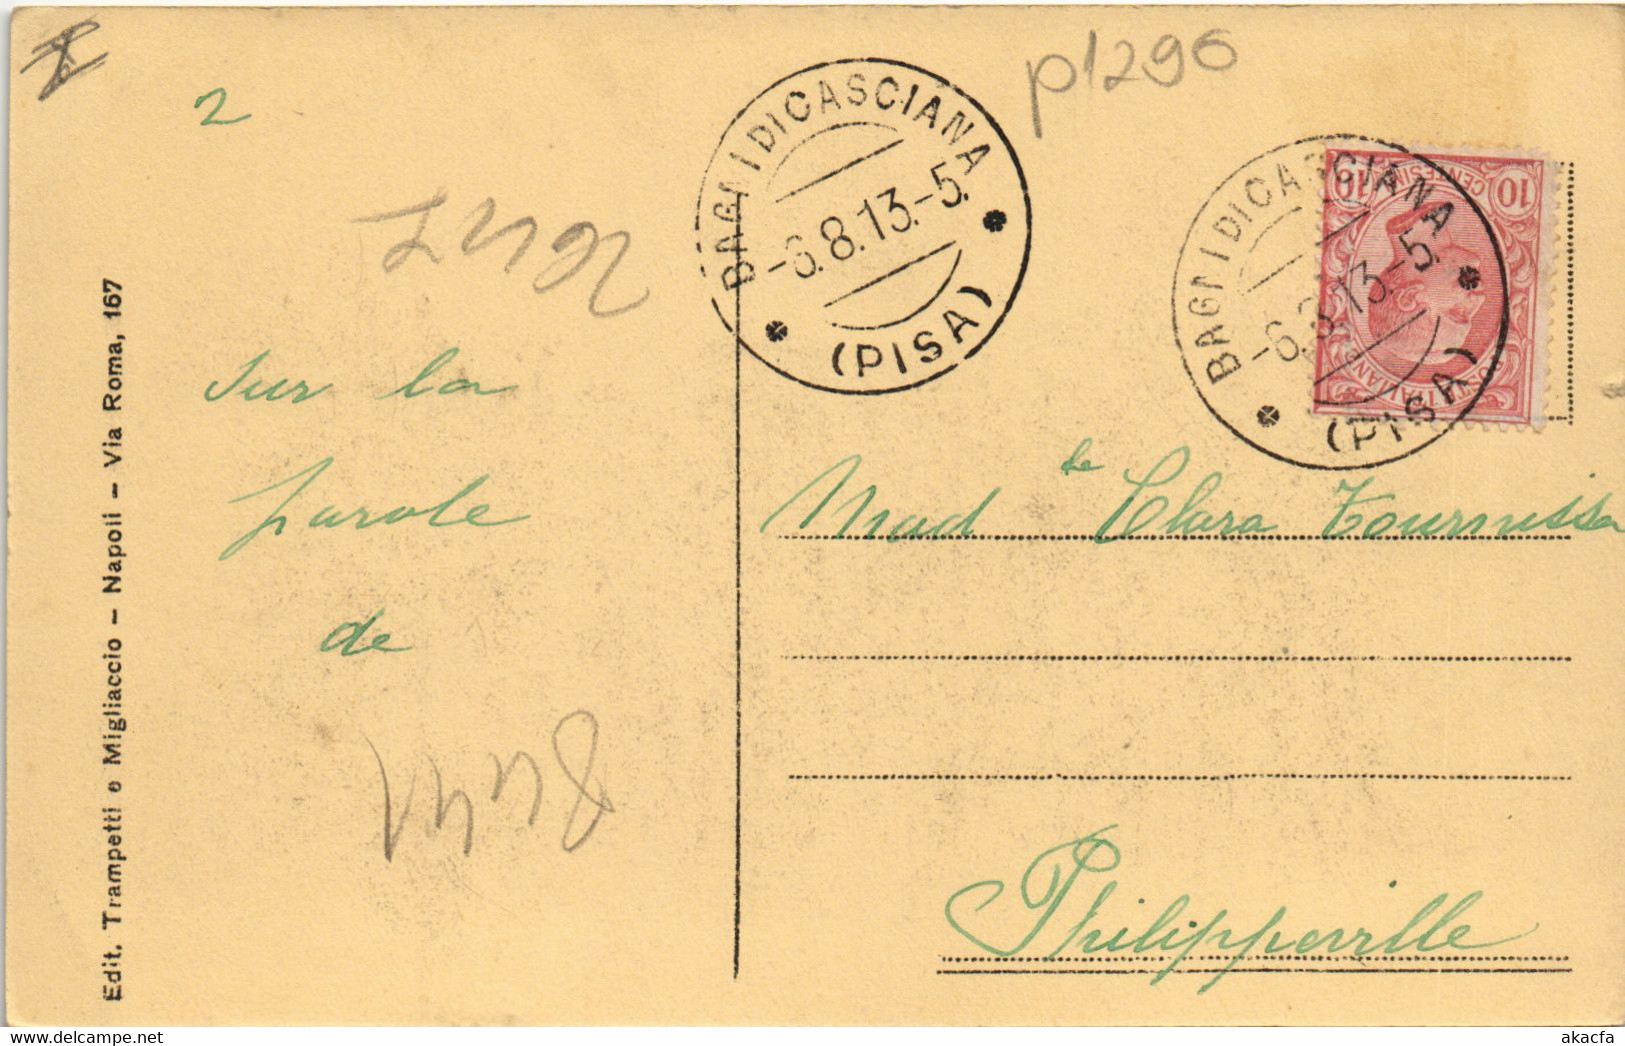 p1296
2
BAGNI DI CASCIANA
-6.8.13.-5.
(PISA)
BAGNI DI CASCIANA
-6.8.13.-5.
(PISA)
10
CENTESIMI
10
POSTE ITALIANE
sur la
parole
de
Madle Clara Tournissa
Philippeville
Edit. Trampetti e Migliaccio - Napoli - Via Roma, 167
akacfa